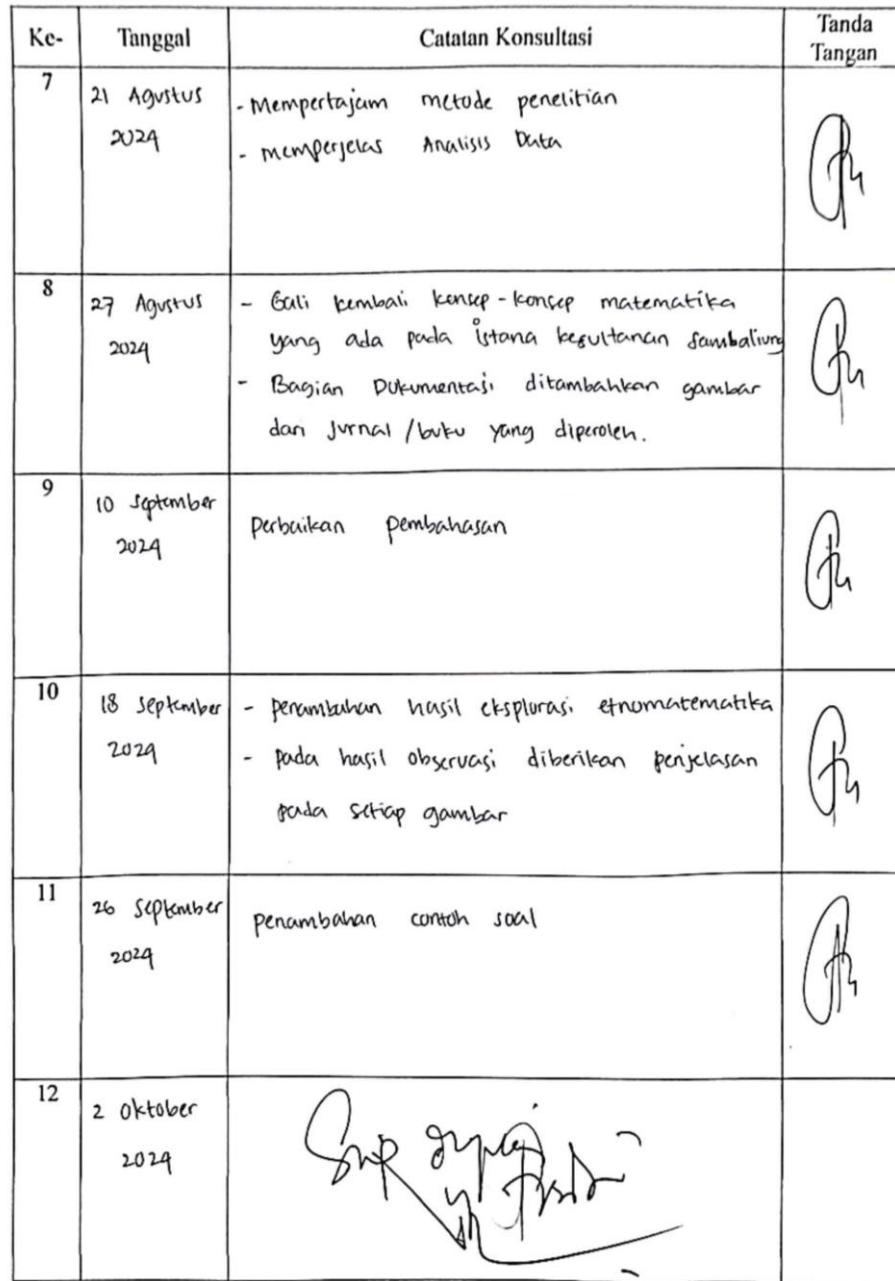 Ke- Tanggal Catatan Konsultasi Tanda
Tangan
7
21 Agustus
2024
- Mempertajam metode penelitian
- memperjelas Analisis Data
8
27 Agustus
2024
- Gali kembali konsep-konsep matematika
yang ada pada istana kesultanan sambaliung
- Bagian Dokumentasi ditambahkan gambar
dari Jurnal/buku yang diperoleh.
9
10 September
2024
perbaikan pembahasan
10
18 September
2024
- penambahan hasil eksplorasi etnomatematika
- pada hasil observasi diberikan penjelasan
pada setiap gambar
11
26 September
2024
penambahan contoh soal
12
2 Oktober
2024